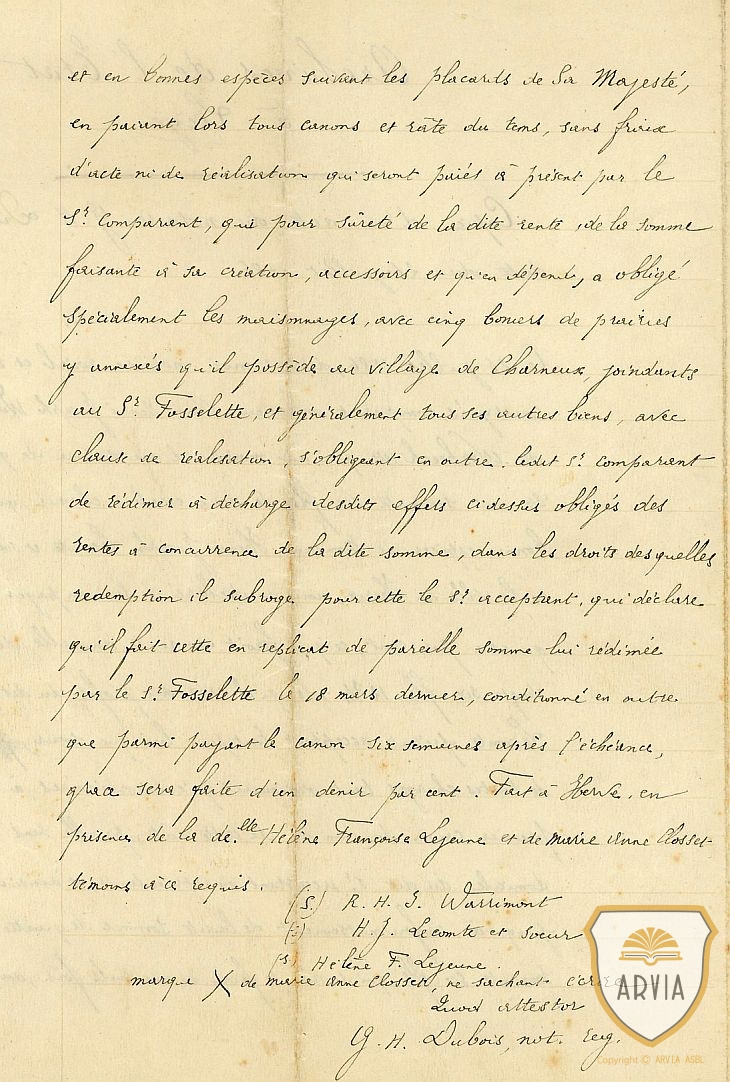 et en bonnes espèces suivent les placards de Sa Majesté,
en paiant lors tous canons et râte du tems, sans fraix
d'acte ni de réalisation qui seront paiés à présent par le
Sr. comparant, qui pour sûreté de la dite rente, de la somme
faisante à sa création, accessoirs et qu'en dépend, a obligé
spécialement les maisonnages, avec cinq boniers de prairies
y annexés qu'il possède au village de Charneux, joindants
au Sr. Fosselette, et généralement tous ses autres biens, avec
clause de réalisation, s'obligeant en outre, ledit Sr. comparant
de rédimer à décharge desdits effets ci dessus obligés des
rentes à concurrence de la dite somme, dans les droits desquelles
redemption il subroge pour cette le Sr. acceptant, qui déclare
qu'il fait cette en replicat de pareille somme lui rédimée
par le Sr. Fosselette le 18 mars dernier, conditionné en outre
que parmi payant le canon six semaines après l'échéance,
grace sera faite d'un denir par cent. Fait à Herve, en
présence de la de.lle Hélène Françoise Lejeune et de marie anne Closset
témoins à ce requis.
(S.) R. H. J. Warrimont
(s) H. J. Lecomte et soeur
(s) Hélène F. Lejeune.
marque X de marie anne Closset, ne sachant écrire
Quod attestor
G. H. Dubois, not. reg.
ARVIA
Copyright © ARVIA ASBL